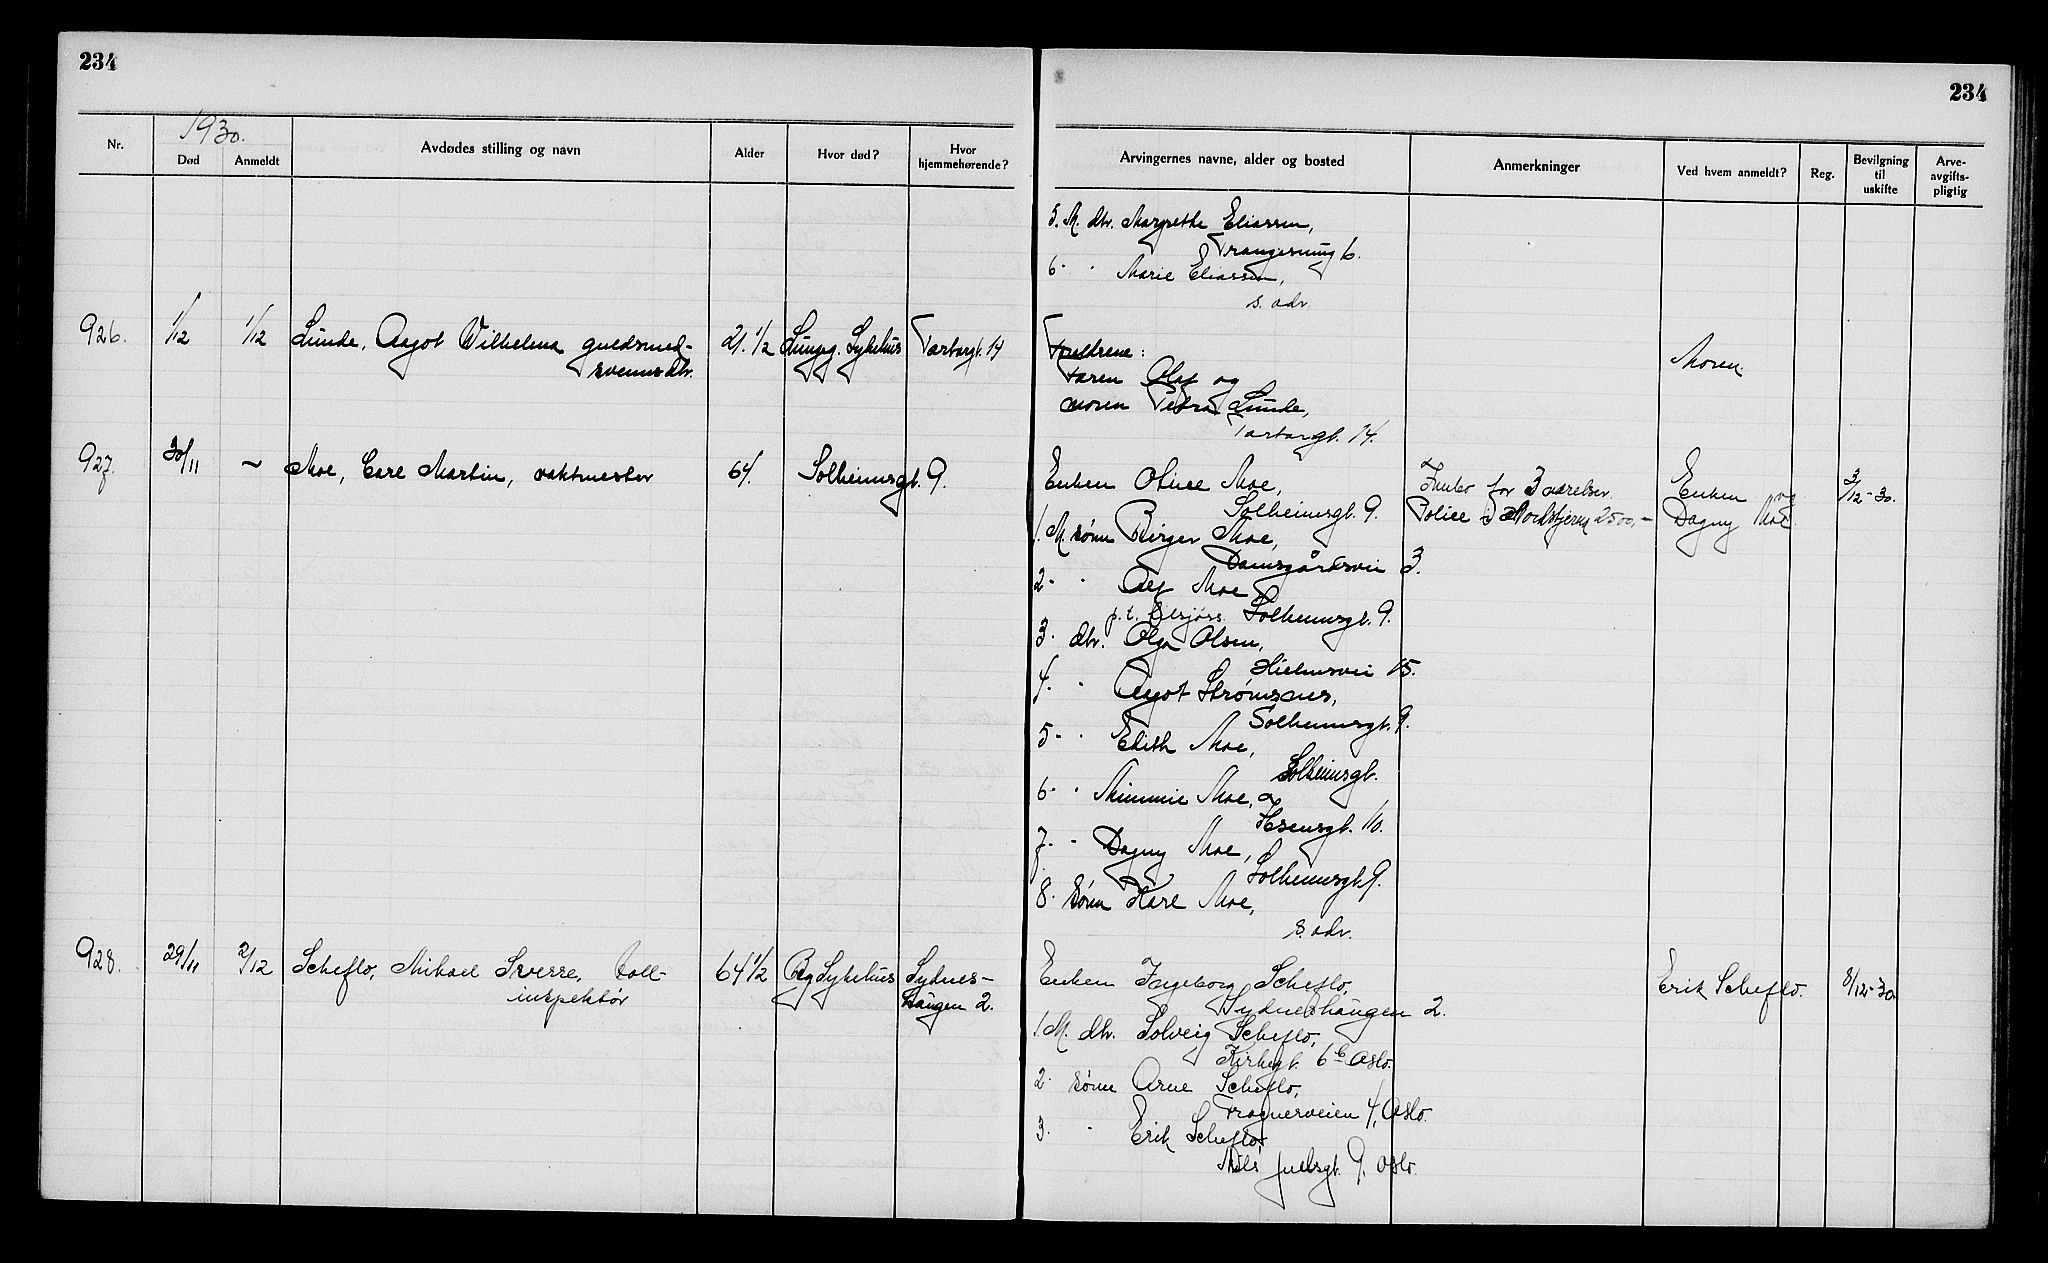 234
234
1930.
Nr.
Død
Anmeldt
Avdødes stilling og navn
Alder
Hvor død?
Hvor hjemmehørende?
Arvingernes navne, alder og bosted
Anmerkninger
Ved hvem anmeldt?
Reg.
Bevilgning til uskifte
Arve-avgifts-pligtig
5. M. dtr. Margrethe Eliassen,
6 - " Marie Eliassen,
s. adr.
926. 1/12 1/12 Lunde, Aagot Wilhelma guldsmed-
svenns dtr. 21 1/2 Lungeg. Sykehus Tartargt. 14
Foreldrene:
Faren Olaf og
moren Petra Lunde,
Tartargt. 14.
Moren.
927. 30/11 ~ Moe, Carl Martin, vaktmester 64. Solheimsgt. 9.
Enken Oline Moe,
Solheimsgt. 9.
Innbo for 3 værelser.
Police i Nordstjernen 2500,-
Enken og
Dagny Moe.
3/12-30.
1. M. sønn Birger Moe,
Damsgårdsvei 3.
2 - " Alf Moe
p.t. tilsjøss Solheimsgt. 9.
3. dtr. Olga Olsen,
15.
4. " Aagot Strømsnes,
Solheimsgt. 9.
5 - " Edith Moe,
Solheimsgt.
6 - " Mimmie Moe,
Ibsensgt. 110.
7. " Dagny Moe,
Solheimsgt. 9.
8. sønn Kare Moe,
s. adr.
928. 29/11 2/12 Scheflo, Mikael Sverre, toll-
inspektør 64 1/2 Bg Sykehus Sydnes-
haugen 2.
Enken Ingeborg Scheflo,
Sydneshaugen 2.
Erik Scheflo. 8/12-30
1. M. dtr. Solveig Scheflo,
Kirkegt. 6 b Oslo.
2. sønn Arne Scheflo,
Frognerveien 4, Oslo.
3. " Erik Scheflo,
Niels Juelsgt. 9, Oslo.